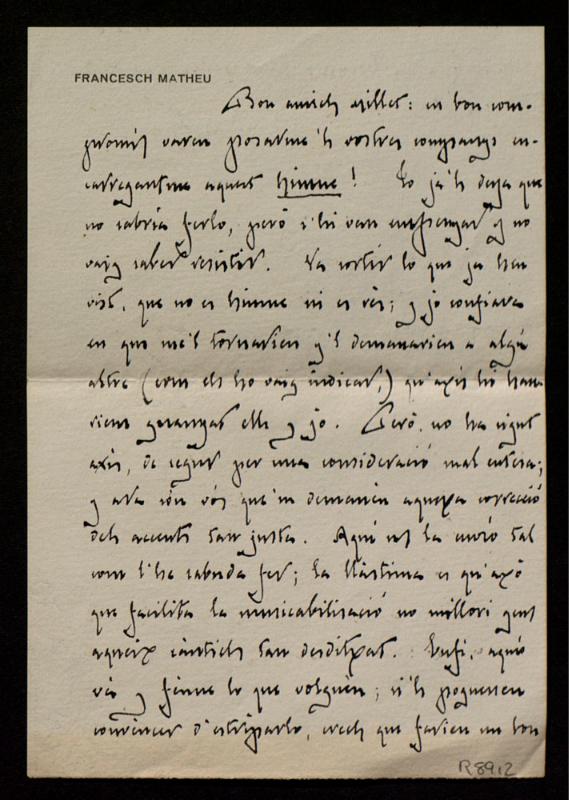 FRANCESCH MATHEU
Bon amich Millet: en bon com-
promís varen posarme 'ls vostres companys en-
carregantme aquest himne! Jo ja 'ls deya que
no sabria ferlo, però s'hi van empenyar y no
vaig saber resistir. Va sortir lo que ja heu
vist, que no es himne ni es res; y jo confiava
en que me'l tornarien y'l demanarien a algú
altre (com els ho vaig indicar,) qu'axís hi hau-
rien guanyat ells y jo. Però, no ha sigut
axís, de segur per una consideració mal entesa;
y ara són vós que'm demanèu aquexa correcció
dels accents tan justa. Aquí us la envio tal
com l'he sabuda fer; la llàstima es qu'axò
que facilita la musicabilisació no millori gens
aqueix càntich tan desditxat. Enfi, aquí
va y fèune lo que volguèu; si'ls poguessen
convèncer d'estriparlo, crech que farien un bon
R 8912